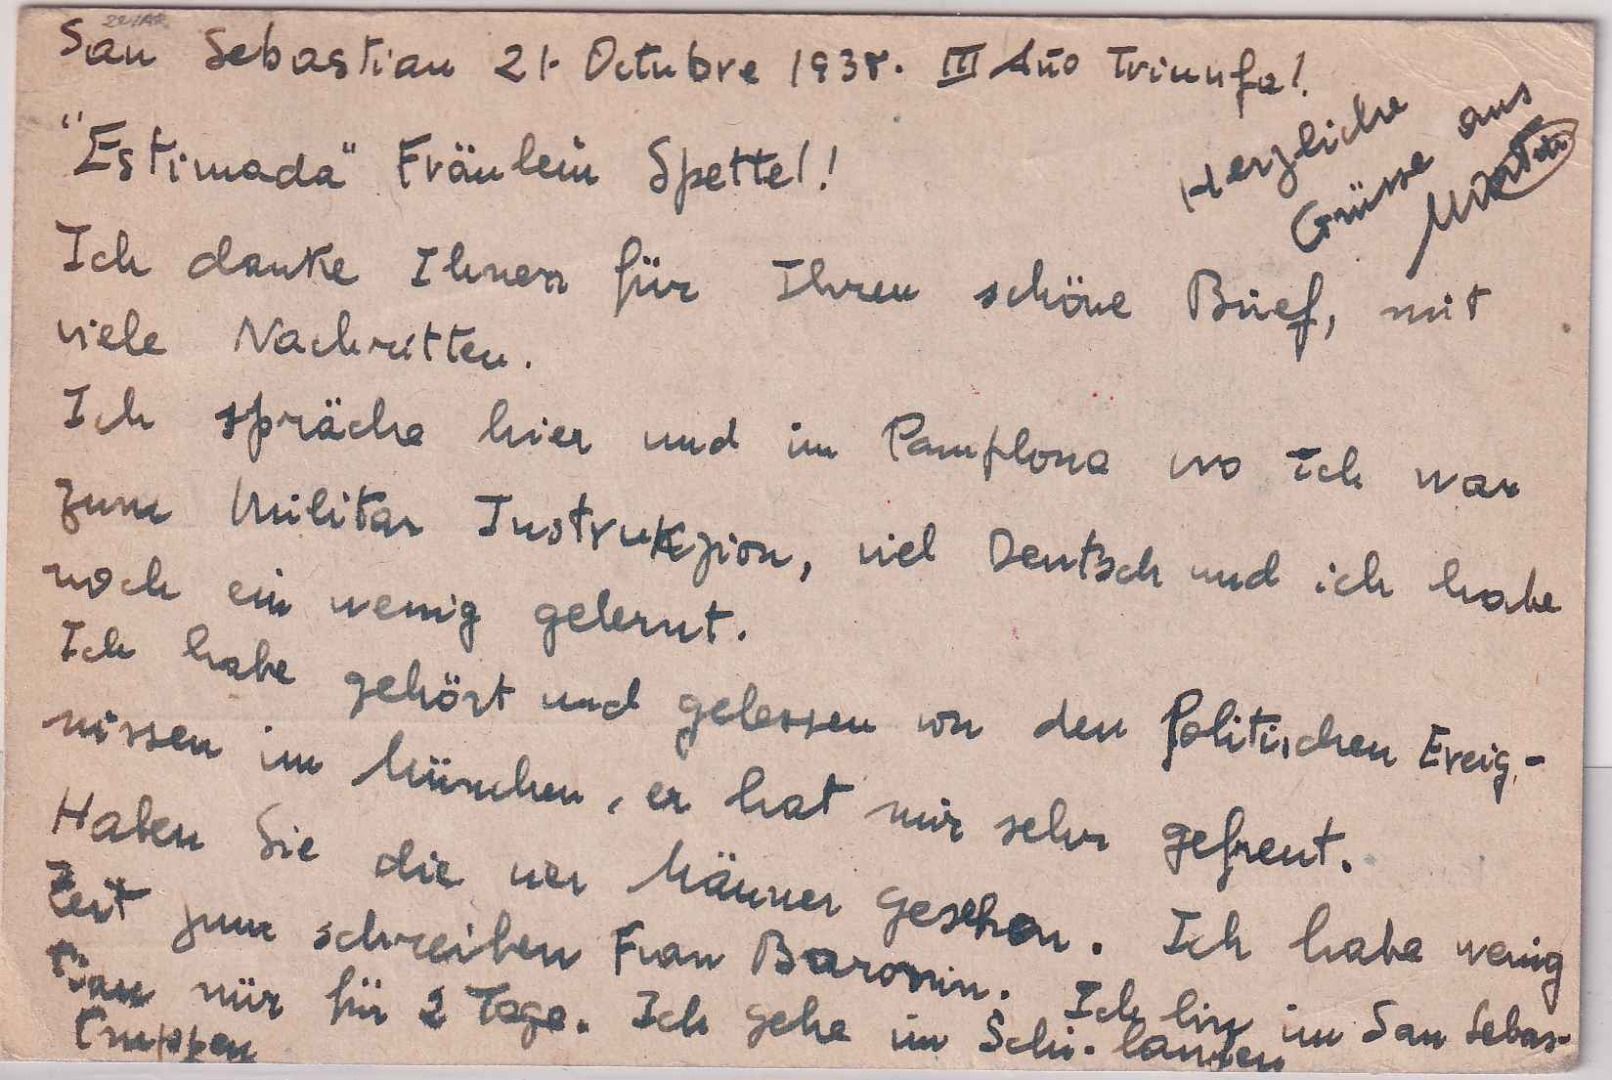 San Sebastian 21. Octubre 1938. III Año Triunfal.
"Estimada" Fräulein Spettel!
Herzliche
Grüsse aus
Ich danke Ihnen für Ihren schöne Brief, mit
viele Nachritten.
Ich spräche hier und im Pamplona wo ich war
zum Militar Instrukzion, viel Deutsch und ich habe
noch ein wenig gelernt.
Ich habe gehört und gelessen von den Politischen Ereig-
nissen im München, er hat mir sehr gefreut.
Haben Sie die vier Männer gesehen. Ich habe wenig
Zeit zum schreiben Frau Baronin. Ich bin im San Sebas-
tian nür für 2 Tage. Ich gehe im Schi-laufen
Truppen